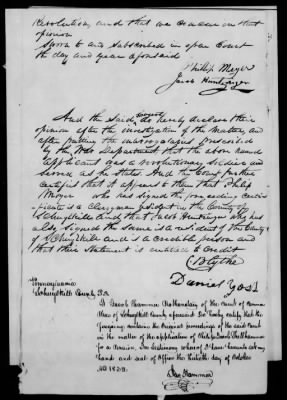 Revolution, and that we concur in that
opinion
Sworn to and subscribed in open Court
the day and year aforesaid
Phillip Meyer
Jacob Huntzinger
And the said Court do hereby declare their
opinion after the investigation of the Matter, and
after putting the interrogatories prescribed
by the War Department that the above named
applicant was a revolutionary soldier and
served as he states. And the Court further
certifies that it appears to them that Philip
Moyer who has signed the preceding certi
ficate is a Clergyman resident in the County of
Schuylkill and that Jacob Huntzinger who has
also signed the same is a resident of the County
of Schuylkill and is a credible person and
that their statement is entitled to Credit
C Blythe
Daniel Yost
Pennsylvania
Schuylkill County Ss.
I Jacob Hammer Prothonotary of the Court of Common
Pleas of Schuylkill County aforesaid Do hereby certify that the
foregoing contains the original proceedings of the said Court
in the matter of the application of Philip
for a Pension. In testimony whereof I have hereunto set my
hand and seal of Office the thirtieth day of October
AD 183
Jac Hammer